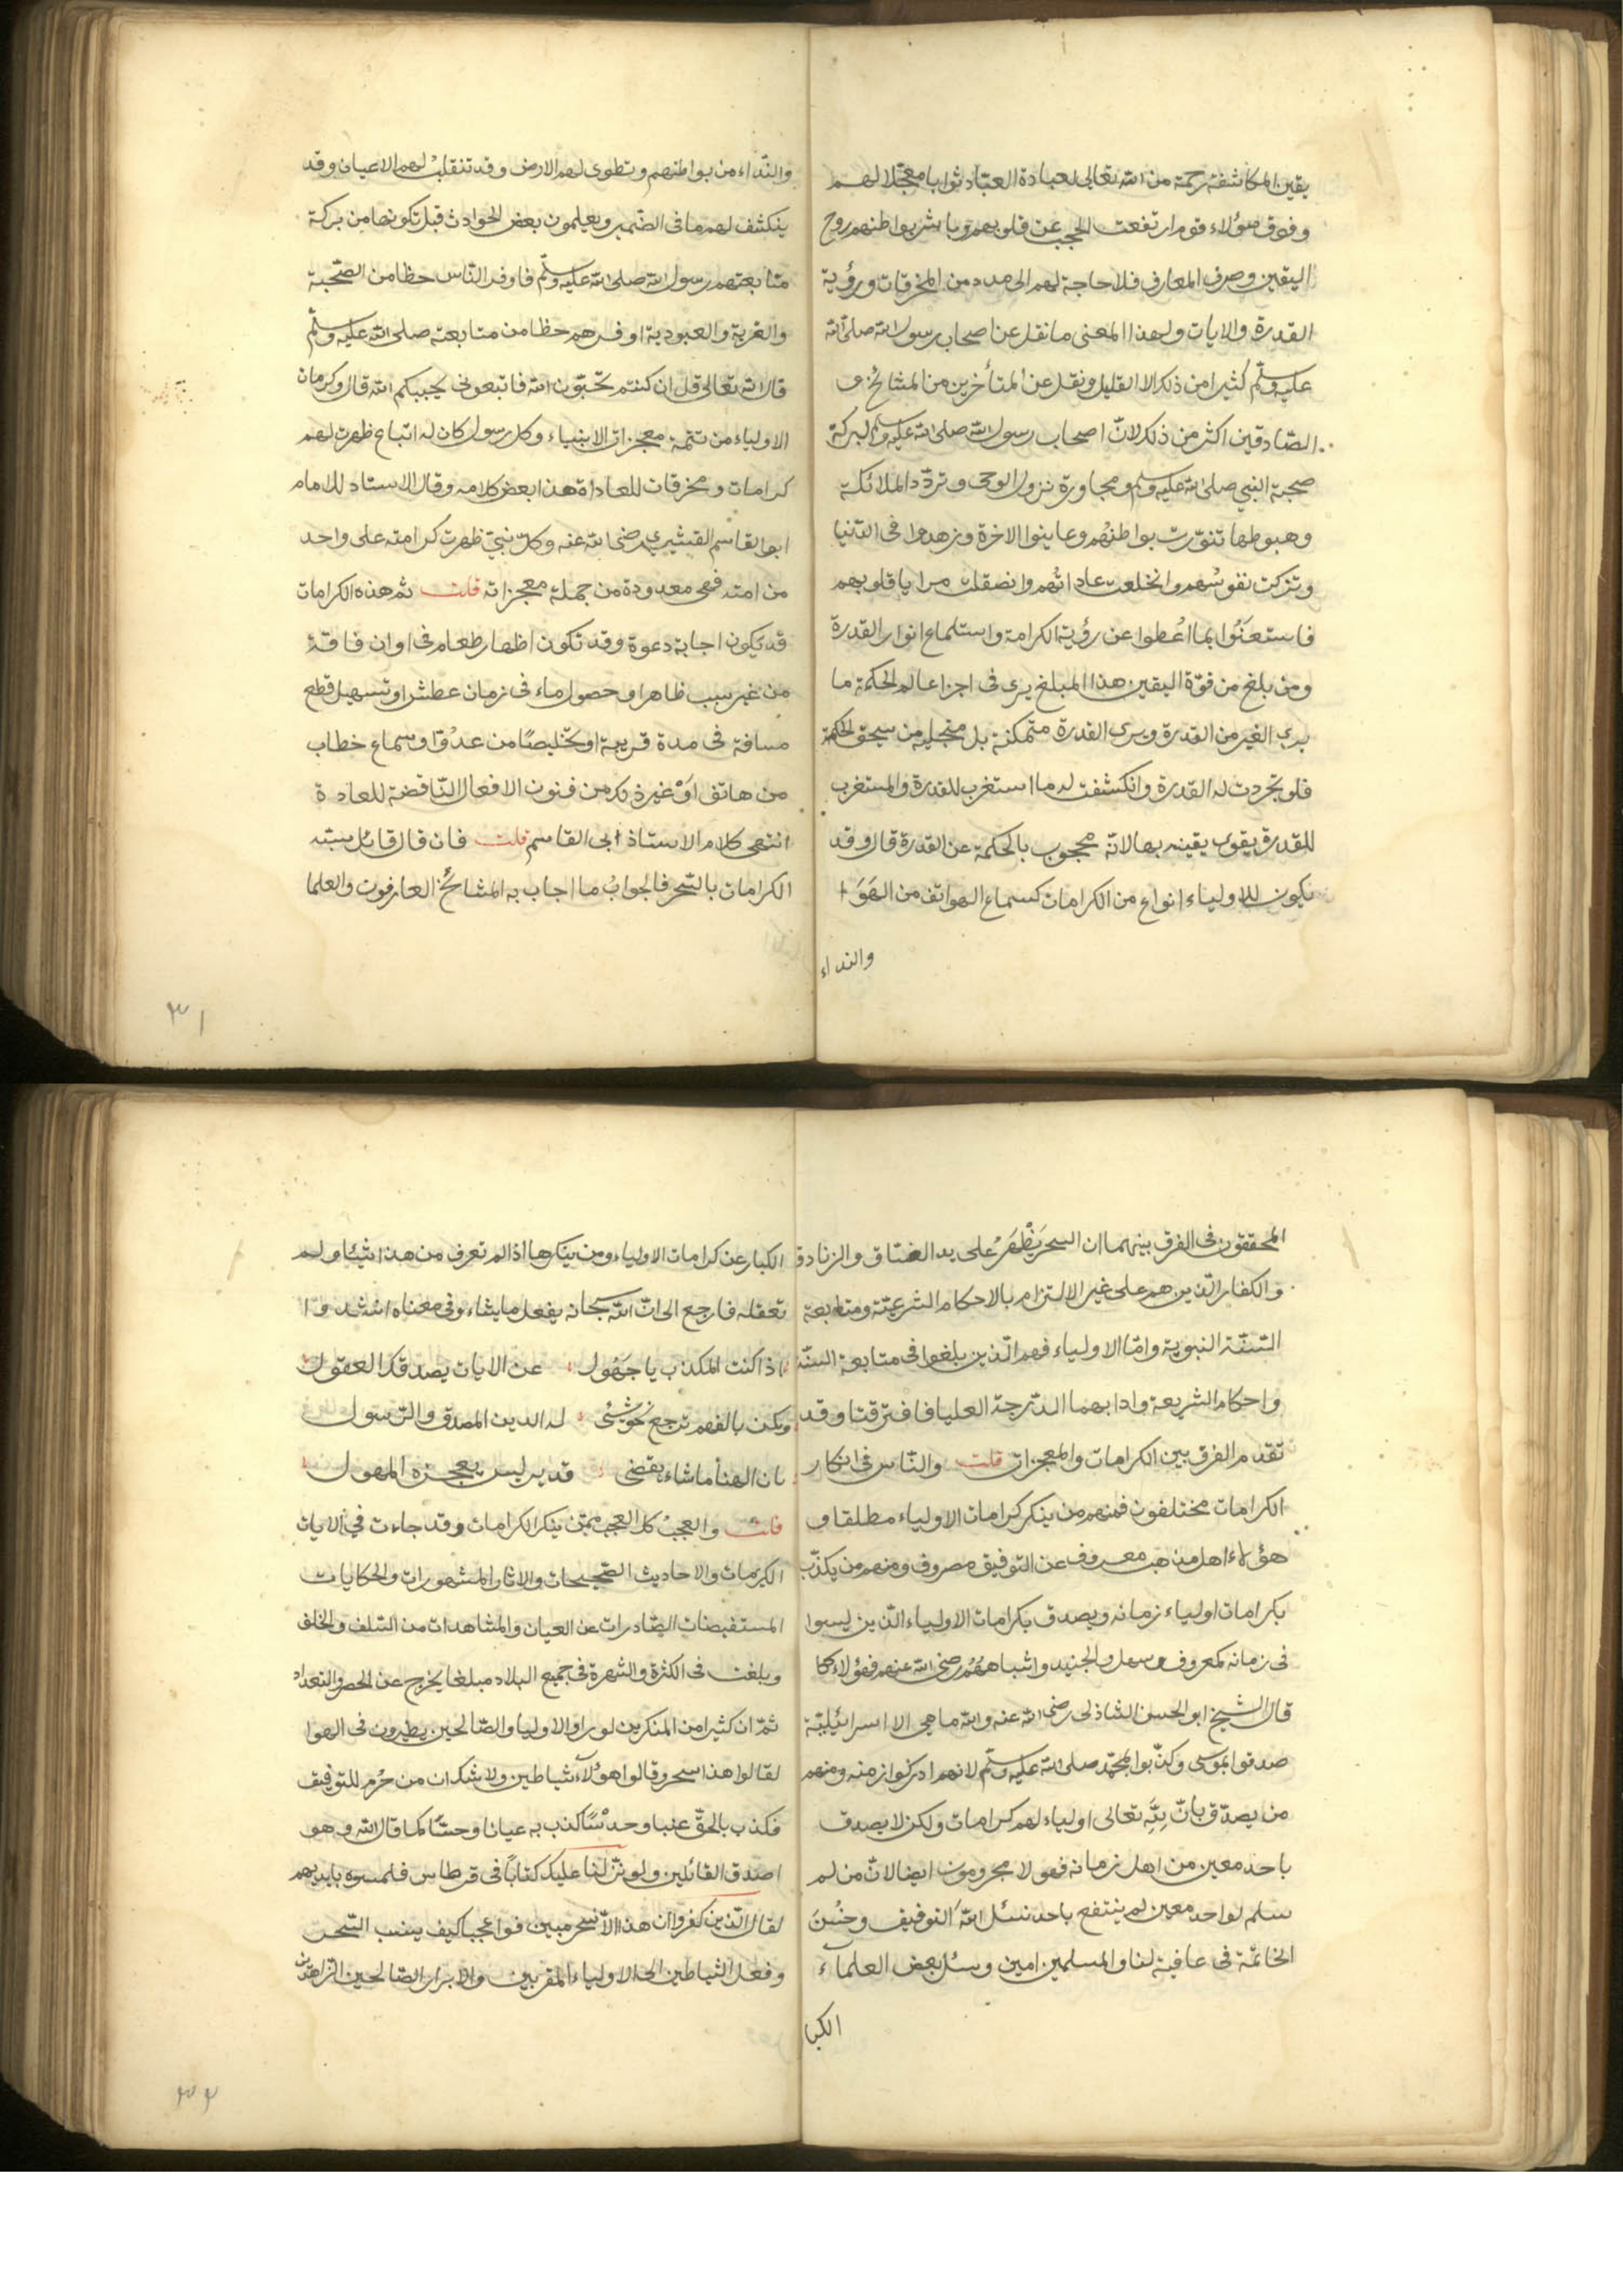 يقين المكاشفة رحمة من الله تعالى لعبادة العباد ثوابا معجلا لهم
وفوق هؤلاء قوم ارتفعت الحجب عن قلوبهم وباشر بواطنهم روح
اليقين وصرف المعارف فلا حاجة لهم الى مدد من المخرقات ورؤية
القدرة والايات ولهذا المعنى ما نقل عن اصحاب رسول الله صلى الله
عليه وسلم كثيرا من ذلك الا القليل ونقل عن المتأخرين من المشائخ و
الصادقين اكثر من ذلك لانّ اصحاب رسول الله صلى الله عليه وسلم لبركة
صحبة النبي صلى الله عليه وسلم ومجاورة نزول الوحى وتردّد الملائكة
وهبوطها تنوّرت بواطنهم وعاينوا الاخرة وزهدوا فى الدّنيا
وتزكت نفوسُهم وانخلعت عاداتُهم وانصقلت مرايا قلوبهم
فاستعنَوُا بما اعُطوا عن رؤية الكرامة واستلماع انوار القدرة
ومن بلغ من قوّة اليقين هذا المبلغ يرى فى اجزا عالم الحكمة ما
يرى الغير من القدرة ويرى القدرة متمكنة بل منجلية من سجق الحكمة
فلو تجردت له القدرة وانكشفت له ما استغرب للقدرة والمستغرب
للقدرة يقوى يقينه بها لانه محجوب بالحكمة عن القدرة قال وقد
يكون للاولياء انواع من الكرامات كسماع الهواتف من الهَوَا
والنداء
والنّداء من بواطنهم وتطوى لهم الارض وقد تنقلبُ لهم الاعيان وقد
ينكشف لهم ما فى الضّمير ويعلمون بعض الحوادث قبل تكونها من بركة
متابعتهم رسول الله صلى الله عليه وسلّم فاوفر النّاس حظا من الصّحبة
والقربة والعبودية اوفرهم حظا من متابعته صلى الله عليه وسلّم
قال الله تعالى قل ان كنتم تحبّون الله فاتبعونى يحببكم الله قال وكرمات
الاولياء من تتمة معجزات الانبياء وكل رسول كان له اتباع ظهرت لهم
كرامات ومخرقات للعاداة هذا بعض كلامه وقال الاستاد للامام
ابو القاسم القشيري رضى الله عنه وكلّ نبيّ ظهرت كرامته على واحد
من امته فهى معدودة من جملة معجزاته قلت ثم هذه الكرامات
قد تكون اجابة دعوة وقد تكون اظهار طعام فى اوان فاقة
من غير سبب ظاهر او حصول ماء فى زمان عطش او تسهيل قطع
مسافة فى مدة قريبة او تخليصًا من عدُوّ او سماع خطاب
من هاتف اوَْ غير ذلك من فنون الافعال النّاقضة للعادة
انتهى كلام الاستاذ ابى القاسم قلت فان قال قائل سبته
الكرامات بالسّحر فالجوابُ ما اجاب به المشائخُ العارفون والعلما
٣١
المحققون فى الفرق بينهما ان السحر يَظْهَرُ على يد الفسّاق والزنادق
والكفار الّذين هم على غير الالتزام بالاحكام الشرعيّة ومتابعة
السّنّة النبوية وامّا الاولياء فهم الّذين بلغوا فى متابعة السنّة
واحكام الشريعة وادابهما الدّرجة العليا فافترقتا وقد
تقدم الفرق بين الكرامات والمعجزات قلت والنّاس فى انكار
الكرامات مختلفون فمنهم من ينكر كرامات الاولياء مطلقا و
هؤلاء اهل مذهب معروف عن التوفيق مصروف ومنهم من يكذّب
بكرامات اولياء زمانه ويصدق بكرامات الاولياء الّذين ليسوا
فى زمانه كمعروف وسهل والجنيد واشباههُم رضى الله عنهم فهؤلاء كما
قال الشيخ ابو الحسن الشاذلى رضى الله عنه والله ما هى الا اسرائيليّة
صدقوا بموسى وكذّبوا بمحمّد صلى الله عليه وسلّم لانهم ادركوا زمنه ومنهم
من يصدّق بانّ لله تعالى اولياء لهم كرامات ولكن لا يصدق
باحد معين من اهل زمانه فهولا محرومون ايضا لانّ من لم
يسلم لواحد معين لم ينتفع باحد نسئل الله التوفيق وحُسْنَ
الخاتمة فى عافية لنا والمسلمين امين وسئل بعض العلماء
الكبا
الكبار عن كرامات الاولياء ومن ينكرها اذا لم تعرف من هذا شيئا ولم
تعقله فارجع الى انّ الله سبحانه يفعل ما يشاء وفى معناه انشدوا
اذا كنت المكذب يا جَهُول عن الايات يصدقك العقول
ويكن بالفهم ترجع نحو شئ له الدين المصدق والرّسول
بان الهنا ما شاء يقضى قدير ليس يعجزه المهول
قلت والعجبُ كل العجب ممّن ينكر الكرامات وقد جاءت في الايات
الكريمات والاحاديث الصّحيحات والاثار المشهورات والحكايات
المستفيضات الصّادرات عن العيان والمشاهدات من السّلف والخلف
وبلغت فى الكثرة والشهرة فى جميع البلاد مبلغا يخرج عن الحصر والتعداد
ثمّ ان كثيرا من المنكرين لو راوا الاوليا والصّالحين يطيرون فى الهوا
لقالوا هذا سحر وقالوا هؤلآء شياطين ولا شك ان من حُرِم للتوفيق
فكذب بالحقّ غيبا وحدْسًا كذب به عيانا وحسّا كما قال الله وهو
اصدق القائلين ولو نزّلنا عليك كتاباً فى قرطاس فلمسوه بايديهم
لقال الّذين كفروا ان هذا الّا سحر مبين فواعجبا كيف ينسب السّحر
وفعل الشياطين الى الاولياء المقربين والابرار الصّالحين الزاهدين
٣٢